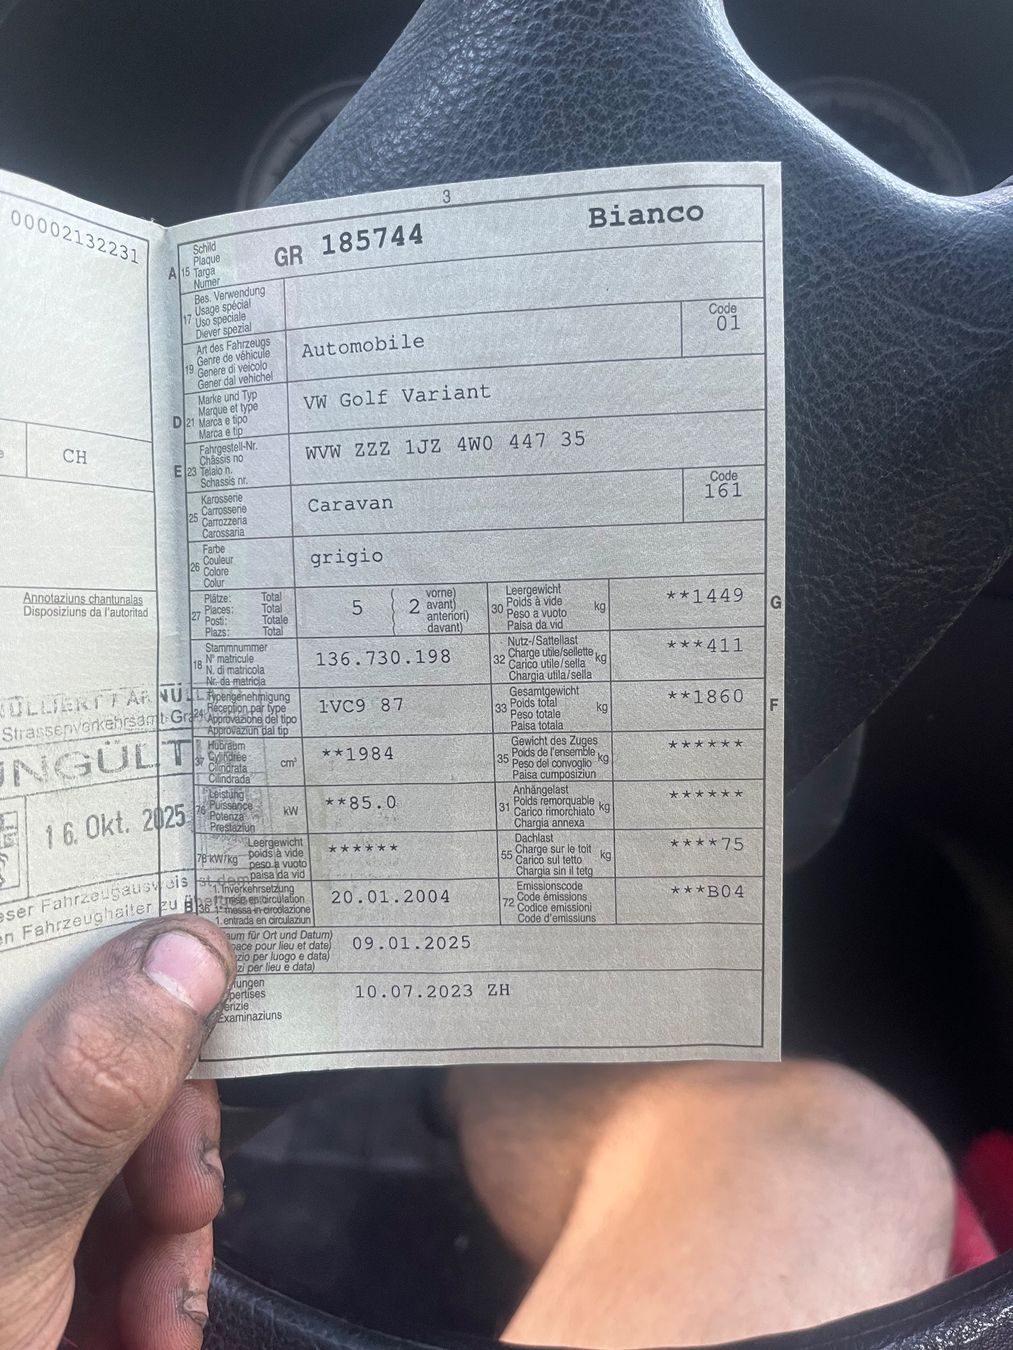 00002132231
CH
Annotaziuns chantunalas
Disposiziuns da l'autoritad
Strassenverkehrsamt
UNGÜLT
16. Okt. 2025
eser Fahrzeugausweis ist dem
en Fahrzeughalter zu
3
A 15 Schild
Plaque
Targa
Numer
GR 185744 Bianco
17 Bes. Verwendung
Usage spécial
Uso speciale
Diever spezial
19 Art des Fahrzeugs
Genre de véhicule
Genere di veicolo
Gener dal vehichel
Automobile
Code
01
D 21 Marke und Typ
Marque et type
Marca e tipo
Marca e tip
VW Golf Variant
E 23 Fahrgestell-Nr.
Châssis no
Telaio n.
Schassis nr.
WVW ZZZ 1JZ 4W0 447 35
25 Karosserie
Carrosserie
Carrozzeria
Carossaria
Caravan
Code
161
26 Farbe
Couleur
Colore
Colur
grigio
27 Plätze: Total
Places: Total
Posti: Totale
Plazs: Total
5 2 vorne)
avant)
anteriori)
davant)
30 Leergewicht
Poids à vide kg
Peso a vuoto
Paisa da vid
**1449 G
18 Stammnummer
N° matricule
N. di matricola
Nr. da matricla
136.730.198
32 Nutz-/Sattellast
Charge utile/sellette kg
Carico utile/sella
Chargia utila/sella
***411
24 Typengenehmigung
Réception par type
Approvazione del tipo
Approvaziun dal tip
1VC9 87
33 Gesamtgewicht
Poids total kg
Peso totale
Paisa totala
**1860 F
37 Hubraum
Cylindrée
Cilindrata cm³
Cilindrada
**1984
35 Gewicht des Zuges
Poids de l'ensemble kg
Peso del convoglio
Paisa cumposiziun
******
76 Leistung
Puissance kW
Potenza
Prestaziun
**85.0
31 Anhängelast
Poids remorquable kg
Carico rimorchiato
Chargia annexa
******
78 kW/kg Leergewicht
poids à vide
peso a vuoto
paisa da vid
******
55 Dachlast
Charge sur le toit kg
Carico sul tetto
Chargia sin il tetg
****75
B 36 1. Inverkehrsetzung
1re mise en circulation
1a messa in circolazione
1. entrada en circulaziun
20.01.2004
72 Emissionscode
Code émissions
Codice emissioni
Code d'emissiuns
***B04
aum für Ort und Datum)
pace pour lieu et date)
zio per luogo e data)
zi per lieu e data)
09.01.2025
ungen
pertises
erizie
Examinaziuns
10.07.2023 ZH